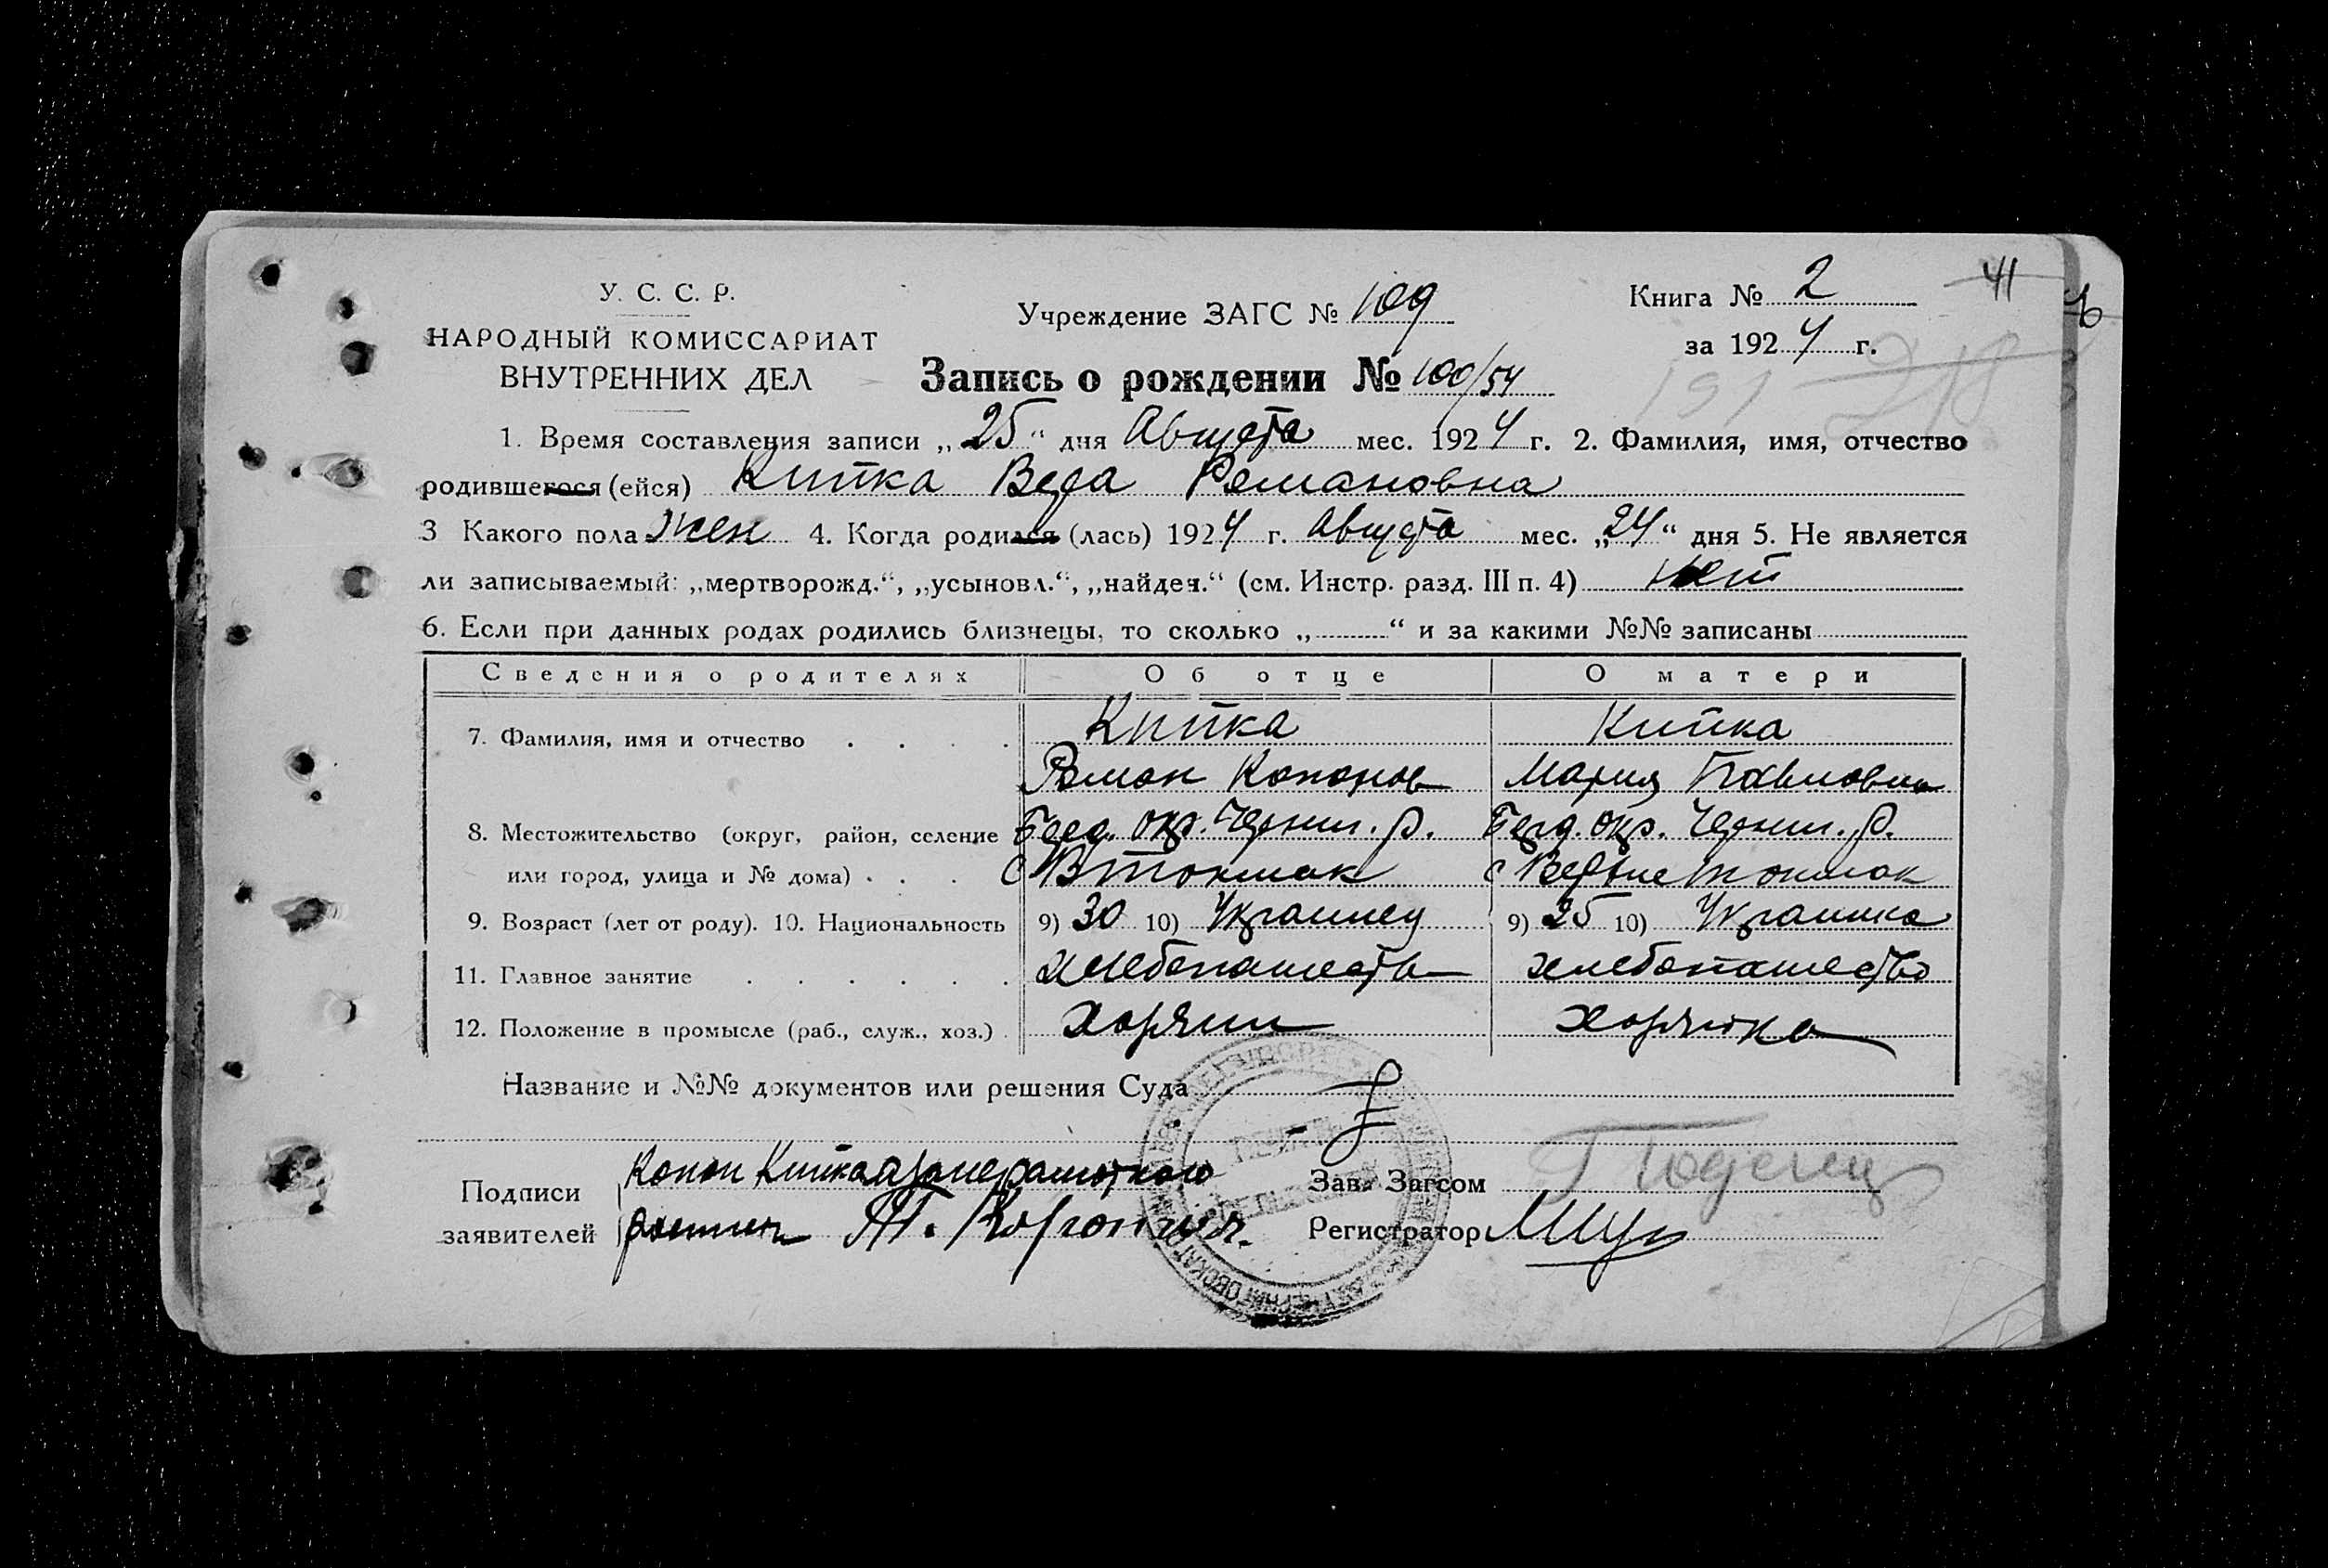 У. С. С. Р.
НАРОДНЫЙ КОМИССАРИАТ
ВНУТРЕННИХ ДЕЛ
Учреждение ЗАГС № 109
Книга № 2
41
за 1924 г.
Запись о рождении № 100/54
1. Время составления записи „25“ дня Августа мес. 1924 г. 2. Фамилия, имя, отчество
родившегося (ейся) Китка Вера Романовна
3 Какого пола жен 4. Когда родился (лась) 1924 г. Августа мес. „24“ дня 5. Не является
ли записываемый: „мертворожд.“, „усыновл.“, „найден.“ (см. Инстр. разд. III п. 4) нет
6. Если при данных родах родились близнецы, то сколько „ “ и за какими №№ записаны
Сведения о родителях Об отце О матери
7. Фамилия, имя и отчество Китка Китка
Роман Кононов Мария Павловна
8. Местожительство (округ, район, селение Берд. окр. Черниг. р. Берд. окр. Черниг. р.
или город, улица и № дома) с В Токмак с Верхне Токмак
9. Возраст (лет от роду). 10. Национальность 9) 30 10) Украинец 9) 25 10) Украинка
11. Главное занятие хлебопашеств хлебопашество
12. Положение в промысле (раб., служ., хоз.) хозяин хозяйка
Название и №№ документов или решения Суда
Подписи Конон Китка а за неграмотного Зав. Загсом
заявителей Регистратор